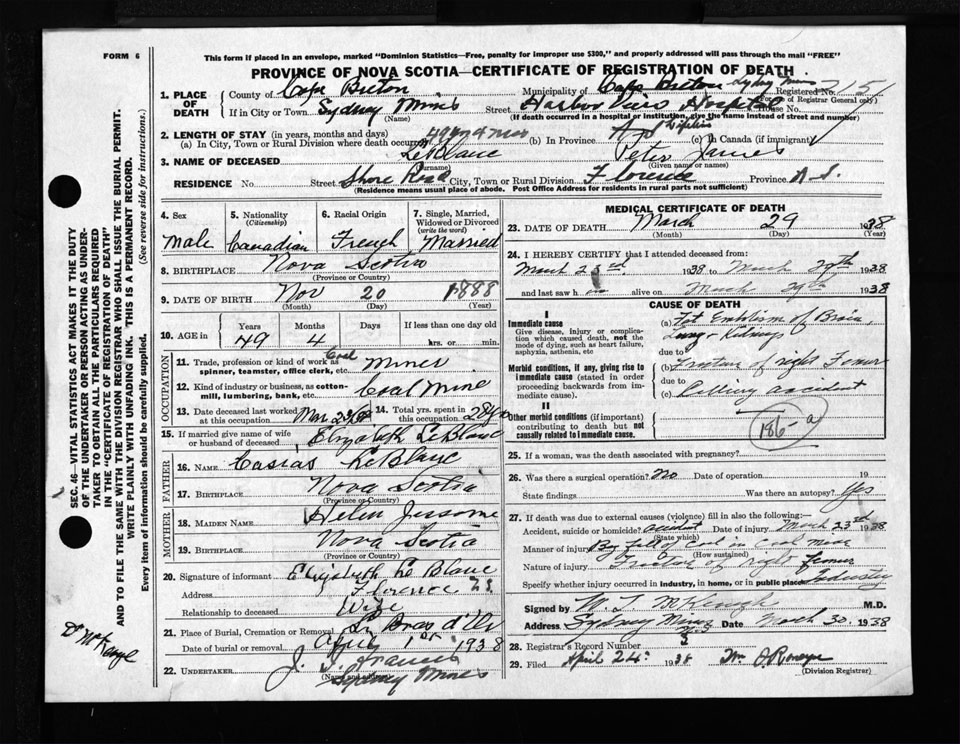 FORM 6
This form if placed in an envelope, marked "Dominion Statistics—Free, penalty for improper use $300," and properly addressed will pass through the mail "FREE"
PROVINCE OF NOVA SCOTIA—CERTIFICATE OF REGISTRATION OF DEATH
1. PLACE OF DEATH
County of Cape Breton Municipality of Cape Breton Sydney Mines Registered No. 7154
(For use of Registrar General only)
If in City or Town Sydney Mines (Name) Street Harbor View Hospital House No.
(If death occurred in a hospital or institution, give the name instead of street and number)
2. LENGTH OF STAY (in years, months and days)
(a) In City, Town or Rural Division where death occurred 49 yr 4 mos (b) In Province (c) In Canada (if immigrant)
3. NAME OF DECEASED LeBlanc (Surname) Peter James (Given name or names)
RESIDENCE No. Street Shore Road City, Town or Rural Division Florence Province N.S.
(Residence means usual place of abode. Post Office Address for residents in rural parts not sufficient)
4. Sex Male
5. Nationality (Citizenship) Canadian
6. Racial Origin French
7. Single, Married, Widowed or Divorced (write the word) Married
8. BIRTHPLACE Nova Scotia
(Province or Country)
9. DATE OF BIRTH Nov 20 1888
(Month) (Day) (Year)
10. AGE in Years 49 Months 4 Days If less than one day hrs. or min.
OCCUPATION
11. Trade, profession or kind of work as spinner, teamster, office clerk, etc. Coal Miner
12. Kind of industry or business, as cotton-mill, lumbering, bank, etc. Coal Mine
13. Date deceased last worked at this occupation Mar 23/38 14. Total yrs. spent in this occupation 28 yrs
15. If married give name of wife or husband of deceased Elizabeth LeBlanc
FATHER
16. NAME Casias LeBlanc
17. BIRTHPLACE Nova Scotia
(Province or Country)
MOTHER
18. MAIDEN NAME Helen Jessome
19. BIRTHPLACE Nova Scotia
(Province or Country)
20. Signature of informant Elizabeth Le Blanc
Address Florence N.S.
Relationship to deceased Wife
21. Place of Burial, Cremation or Removal L Bras d'Or
Date of burial or removal April 1st 1938
22. UNDERTAKER J. J. Francis
(Name and address) Sydney Mines
MEDICAL CERTIFICATE OF DEATH
23. DATE OF DEATH March 29 1938
(Month) (Day) (Year)
24. I HEREBY CERTIFY that I attended deceased from
March 23rd 1938 to March 29th 1938
and last saw him alive on March 29th 1938
CAUSE OF DEATH
I
Immediate cause
Give disease, injury or complication which caused death, not the mode of dying, such as heart failure, asphyxia, asthenia, etc
(a) Fat Embolism of Brain, Lung & Kidneys
due to
Morbid conditions, if any, giving rise to immediate cause (stated in order proceeding backwards from immediate).
(b) Fracture of right Femur
due to
(c) Colliery accident
II
Other morbid conditions (if important) contributing to death but not causally related to immediate cause.
186-a
25. If a woman, was the death associated with pregnancy?
26. Was there a surgical operation? No Date of operation 19
State findings Was there an autopsy? Yes
27. If death was due to external causes (violence) fill in also the following:
Accident, suicide or homicide? Accident Date of injury March 23rd 1938
(State which)
Manner of injury By fall of Coal in Coal Mine
(How sustained)
Nature of injury Fracture of right femur
Specify whether injury occurred in industry, in home, or in public place Industry
Signed by M.D.
Address Sydney Mines N.S. Date March 30 1938
28. Registrar's Record Number 3
29. Filed April 24th 1938
(Division Registrar)
SEC. 46—VITAL STATISTICS ACT MAKES IT THE DUTY OF THE UNDERTAKER OR PERSON ACTING AS UNDERTAKER TO OBTAIN ALL THE PARTICULARS REQUIRED IN THE "CERTIFICATE OF REGISTRATION OF DEATH"
AND TO FILE THE SAME WITH THE DIVISION REGISTRAR WHO SHALL ISSUE THE BURIAL PERMIT.
WRITE PLAINLY WITH UNFADING INK. THIS IS A PERMANENT RECORD.
Every item of information should be carefully supplied. (See reverse side for instructions.)